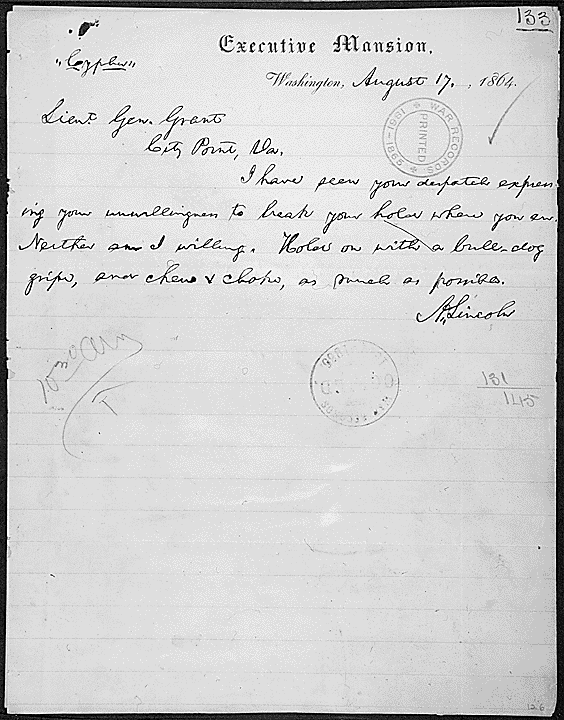 133
"Cypher"
Executive Mansion,
Washington, August 17. , 1864.
Lieut. Gen. Grant
City Point, Va.
I have seen your despatch express-
ing your unwillingness to break your hold where you are.
Neither am I willing. Hold on with a bull-dog
gripe, and chew & choke, as much as possible.
A. Lincoln
WAR RECORDS
1861-1865
PRINTED
131
145
126